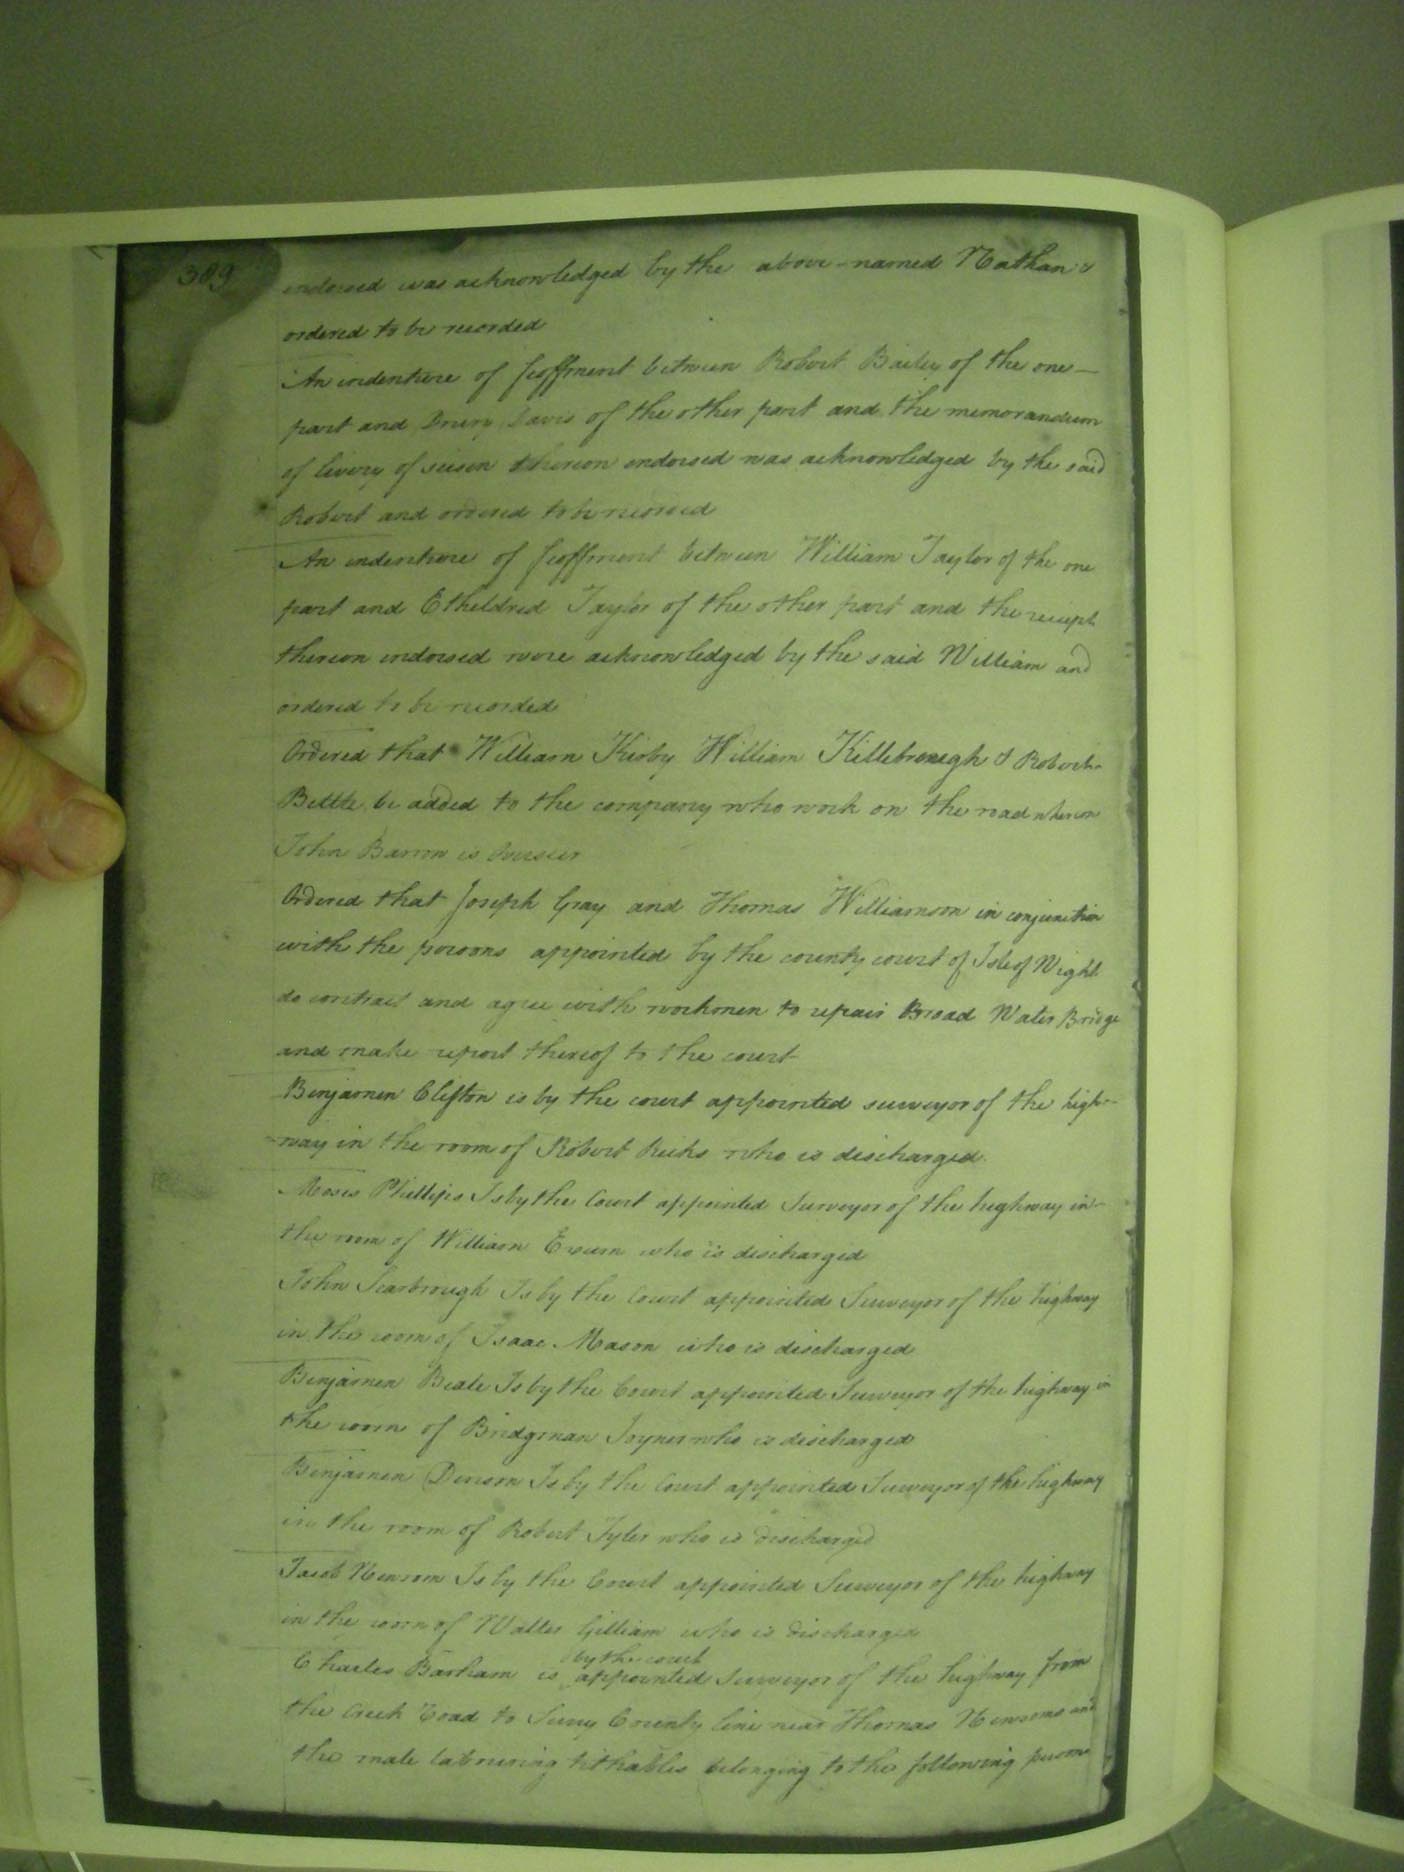 389
endorsed was acknowledged by the above-named Nathan &
ordered to be recorded
An indenture of feoffment between Robert Bailey of the one
part and Drury Davis of the other part and the memorandum
of livery of seisen thereon endorsed was acknowledged by the said
Robert and ordered to be recorded
An indenture of feoffment between William Taylor of the one
part and Etheldred Taylor of the other part and the reciept
thereon endorsed were acknowledged by the said William and
ordered to be recorded
Ordered that William Kirby William Killebrewgh & Robert
Bittle be added to the company who work on the road whereon
John Barrow is Overseer
Ordered that Joseph Gray and Thomas Williamson in conjunction
with the persons appointed by the county court of Isle of Wight
do contract and agree with workmen to repair Broad Water Bridge
and make report thereof to the court
Benjamen Clifton is by the court appointed surveyor of the high-
-way in the room of Robert Ricks who is discharged.
Moses Phillips Is by the Court appointed Surveyor of the highway in
the room of William Exum who is discharged
John Scarbrough Is by the Court appointed Surveyor of the highway
in the room of Isaac Mason who is discharged
Benjamen Beale Is by the Court appointed Surveyor of the highway in
the room of Bridgman Joyner who is discharged
Benjamen Denson Is by the Court appointed Surveyor of the highway
in the room of Robert Tyler who is discharged
Jacob Newsom Is by the Court appointed Surveyor of the highway
in the room of Walter Gilliam who is discharged
by the court
Charles Barham is appointed Surveyor of the highway from
the Creek Road to Surry County line near Thomas Newsoms and
the male labouring tithables belonging to the following